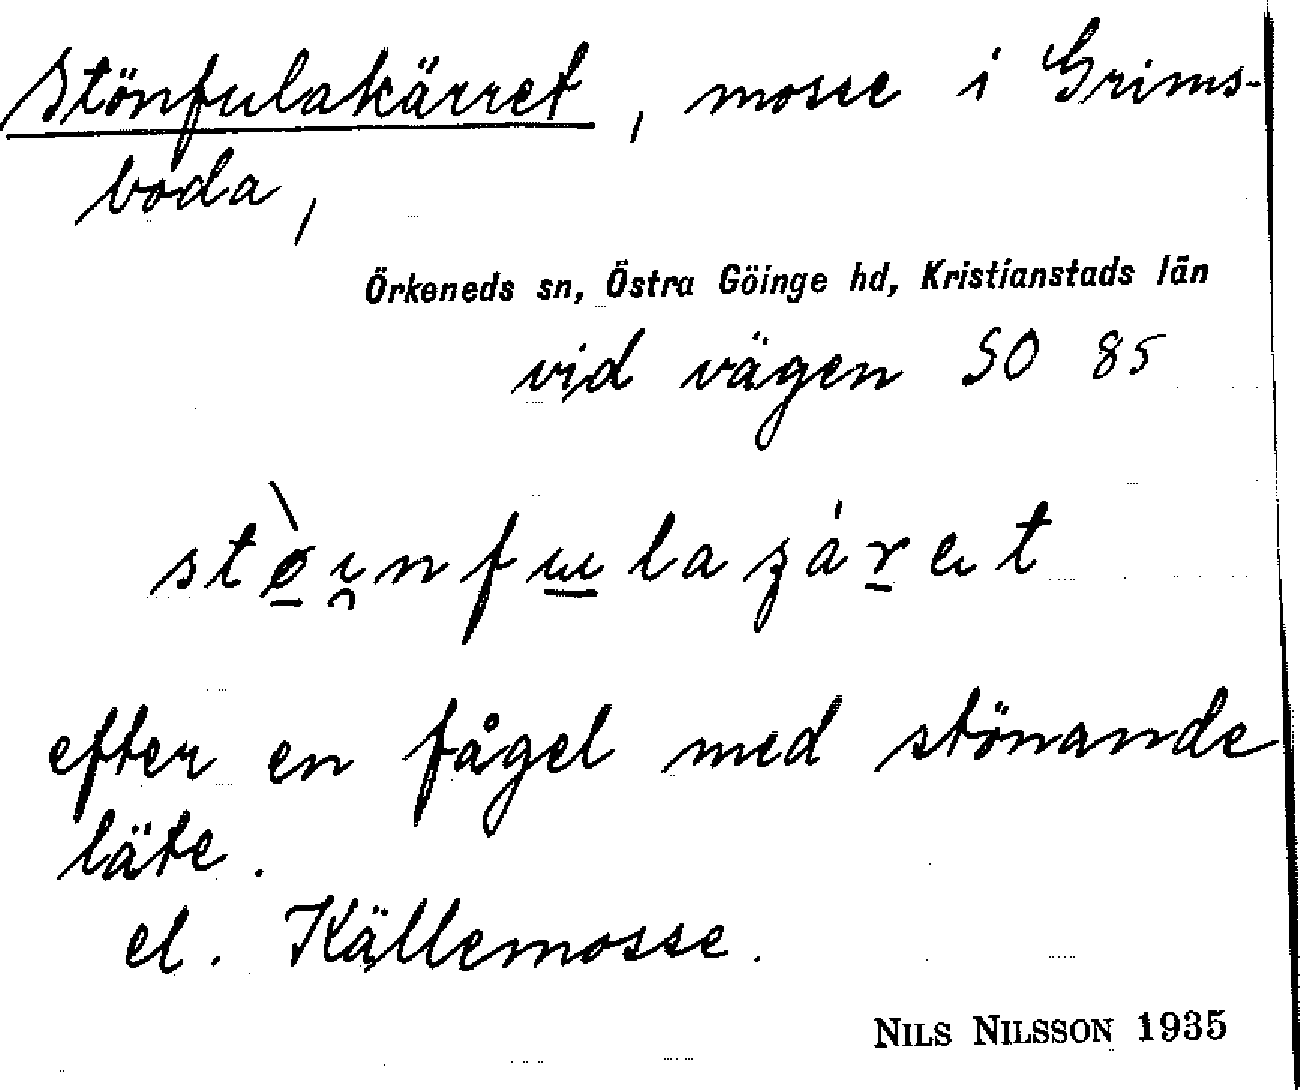 Stönfulakärret, mosse i Grims-
boda,
Örkeneds sn, Östra Göinge hd, Kristianstads län
vid vägen SO 85
efter en fågel med stönande
läte.
el. Källemosse.
NILS NILSSON 1935